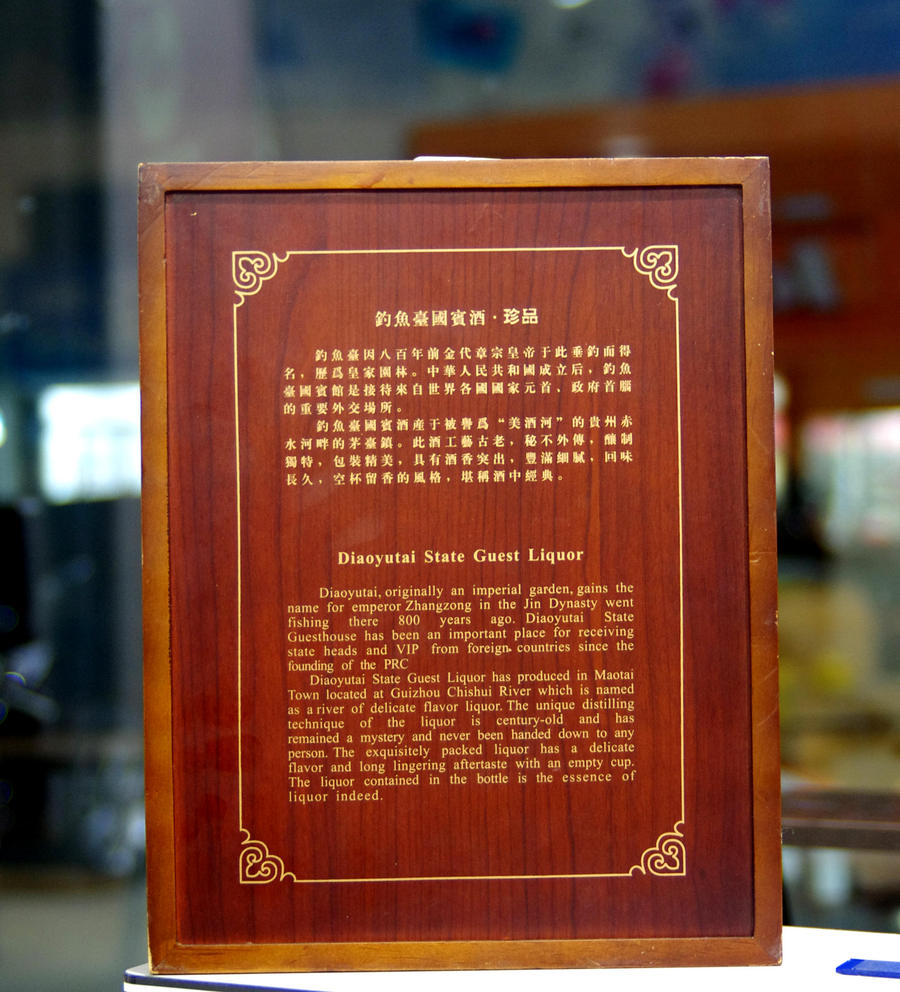 釣魚臺國賓酒·珍品
釣魚臺因八百年前金代章宗皇帝于此垂釣而得
名，歷爲皇家園林。中華人民共和國成立后，釣魚
臺國賓館是接待來自世界各國國家元首、政府首腦
的重要外交場所。
釣魚臺國賓酒産于被譽爲“美酒河”的貴州赤
水河畔的茅臺鎮。此酒工藝古老，秘不外傳，釀制
獨特，包裝精美，具有酒香突出，豐滿細膩，回味
長久，空杯留香的風格，堪稱酒中經典。
Diaoyutai State Guest Liquor
Diaoyutai, originally an imperial garden, gains the
name for emperor Zhangzong in the Jin Dynasty went
fishing there 800 years ago. Diaoyutai State
Guesthouse has been an important place for receiving
state heads and VIP from foreign countries since the
founding of the PRC
Diaoyutai State Guest Liquor has produced in Maotai
Town located at Guizhou Chishui River which is named
as a river of delicate flavor liquor. The unique distilling
technique of the liquor is century-old and has
remained a mystery and never been handed down to any
person. The exquisitely packed liquor has a delicate
flavor and long lingering aftertaste with an empty cup.
The liquor contained in the bottle is the essence of
liquor indeed.